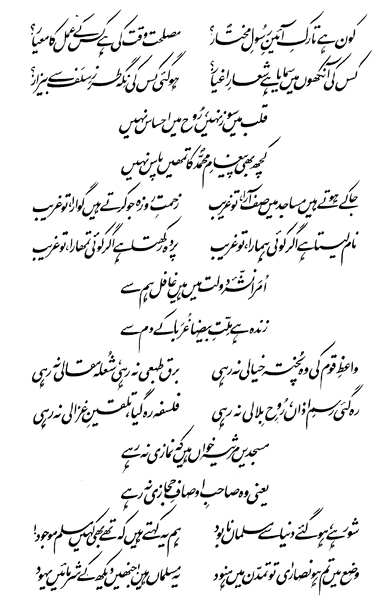 کون ہے تارکِ آئینِ رسولِ مختارؐ؟ مصلحت وقت کی ہے کس کے عمل کا معیار؟
کس کی آنکھوں میں سمایا ہے شعارِ اغیار؟ ہو گئی کس کی نگہ طرزِ سلف سے بیزار؟
قلب میں سوز نہیں، روح میں احساس نہیں
کچھ بھی پیغامِ محمدؐ کا تمھیں پاس نہیں
جا کے ہوتے ہیں مساجد میں صف آرا، تو غریب زحمتِ روزہ جو کرتے ہیں گوارا، تو غریب
نام لیتا ہے اگر کوئی ہمارا، تو غریب پردہ رکھتا ہے اگر کوئی تمھارا، تو غریب
اُمَرا نشۂ دولت میں ہیں غافل ہم سے
زندہ ہے ملّتِ بیضا غُرَبا کے دم سے
واعظِ قوم کی وہ پختہ خیالی نہ رہی برق طبعی نہ رہی، شعلہ مقالی نہ رہی
رہ گئی رسمِ اذاں، روحِ بلالی نہ رہی فلسفہ رہ گیا، تلقینِ غزالی نہ رہی
مسجدیں مرثیہ خواں ہیں کہ نمازی نہ رہے
یعنی وہ صاحبِ اوصافِ حجازی نہ رہے
شور ہے، ہو گئے دنیا سے مسلماں نابود ہم یہ کہتے ہیں کہ تھے بھی کہیں مسلم موجود!
وضع میں تم ہو نصاریٰ تو تمدن میں ہنود یہ مسلماں ہیں! جنھیں دیکھ کے شرمائیں یہود